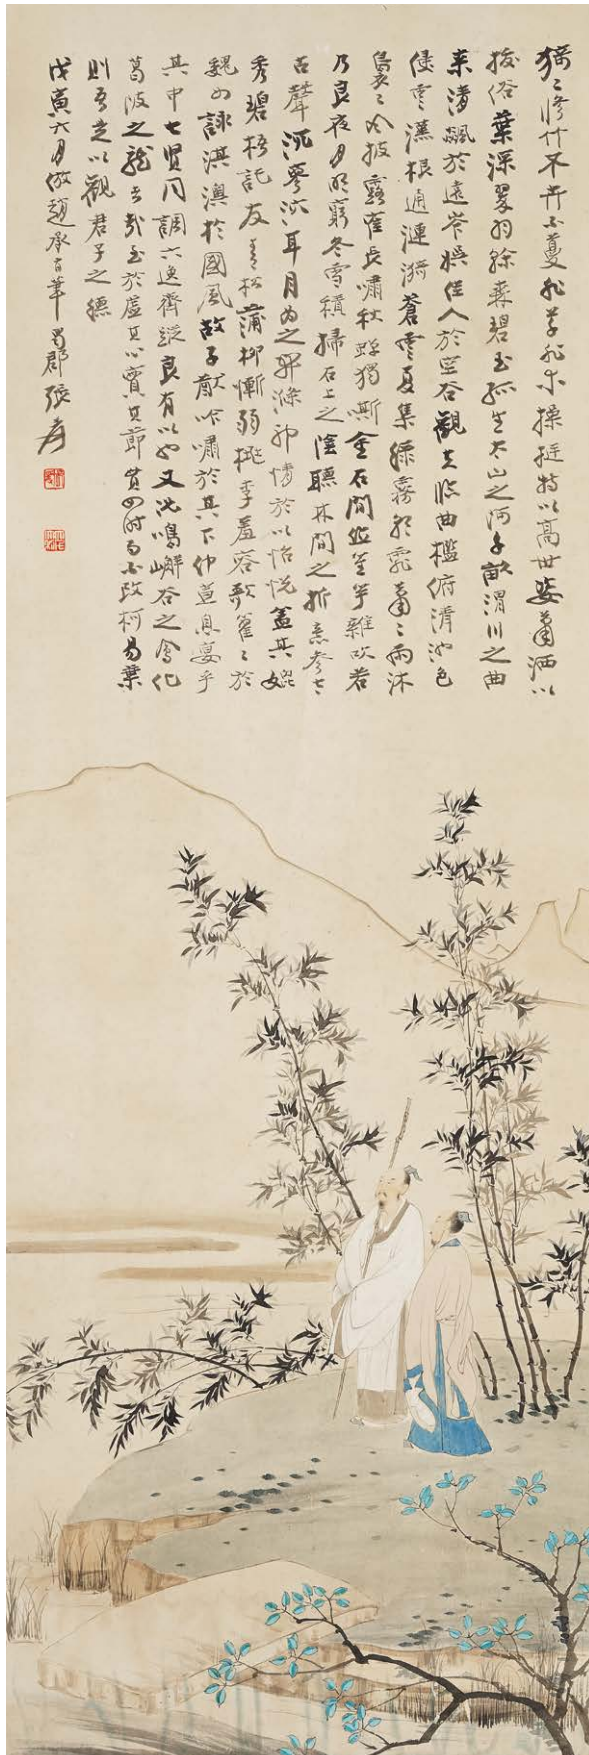 猗〻修竹不卉不蔓非草非木操挺特以高世姿蕭洒以
拔俗葉深翠羽榦森碧玉孤生太山之阿千畝渭川之曲
来清飆於遠岑娛佳人於空谷觀夫臨曲檻俯清池色
侵雲漢根通漣漪蒼雲夏集綠霧朝霏蕭〻雨沐
裊〻風披露隺長嘯秋蟬獨嘶金石間作笙竽雜吹若
乃良夜月明窮冬雪積掃石上之陰聽林間之折意參太
古聲沉寥泬耳目為之開滌神情於以怡悅盖其媲
秀碧梧託友青松蒲柳慚弱桃李羞容歌籊〻於
魏女詠淇澳於國風故子猷吟嘯於其下仲宣息宴乎
其中七賢同調六逸齊蹤良有以也又況鳴嶰谷之鳳化
葛陂之龍者哉至於虛其心實其節貫四時而不改柯易葉
則吾是以觀君子之德
戊寅六月倣趙承旨筆蜀郡張爰